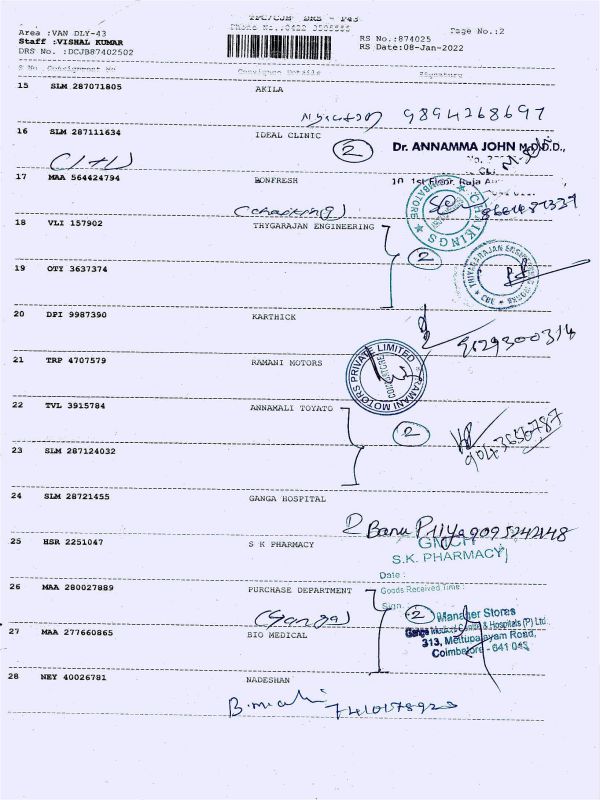 TPC/CJB DRS - P43
Area :VAN DLY-43
Phone No.:0422
Page No.:2
Staff :VISHAL KUMAR
RS No.:874025
DRS No. :DCJB87402502
RS Date:08-Jan-2022
S No Consignment No Consignee Details Signature
15 SLM 287071805 AKILA
9894268697
16 SLM 287111634 IDEAL CLINIC
2
Dr. ANNAMMA JOHN
1st Floor, Raja
17 MAA 564424794 BONFRESH
18 VLI 157902 THYGARAJAN ENGINEERING
2
19 OTY 3637374
20 DPI 9987390 KARTHICK
9629300314
21 TRP 4707579 RAMANI MOTORS
RAMANI MOTORS PRIVATE LIMITED
COIMBATORE
22 TVL 3915784 ANNAMALI TOYATO
2
9043656787
23 SLM 287124032
24 SLM 28721455 GANGA HOSPITAL
2 Banu Priya 9095242148
25 HSR 2251047 S K PHARMACY
GMCH
S.K. PHARMACY
Date :
26 MAA 280027889 PURCHASE DEPARTMENT
Goods Received Time :
Sign.
(Ganga)
2
Manager Stores
Ganga Medical Centre & Hospitals (P) Ltd
313, Mettupalayam Road,
Coimbatore - 641 043
27 MAA 277660865 BIO MEDICAL
28 NEY 40026781 NADESHAN